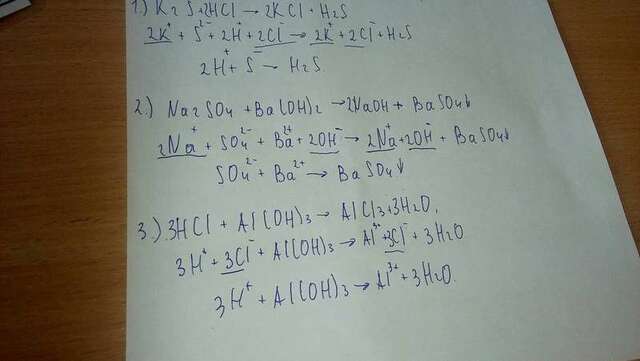 1) K2S+2HCl→2KCl+H2S
2K⁺+S²⁻+2H⁺+2Cl⁻→2K⁺+2Cl⁻+H2S
2H⁺+S⁻→H2S.
2.) Na2SO4+Ba(OH)2→2NaOH+BaSO4↓
2Na⁺+SO4²⁻+Ba²⁺+2OH⁻→2Na⁺+2OH⁻+BaSO4↓
SO4²⁻+Ba²⁺→BaSO4↓
3.) 3HCl+Al(OH)3→AlCl3+3H2O.
3H⁺+3Cl⁻+Al(OH)3→Al³⁺+3Cl⁻+3H2O
3H⁺+Al(OH)3→Al³⁺+3H2O.